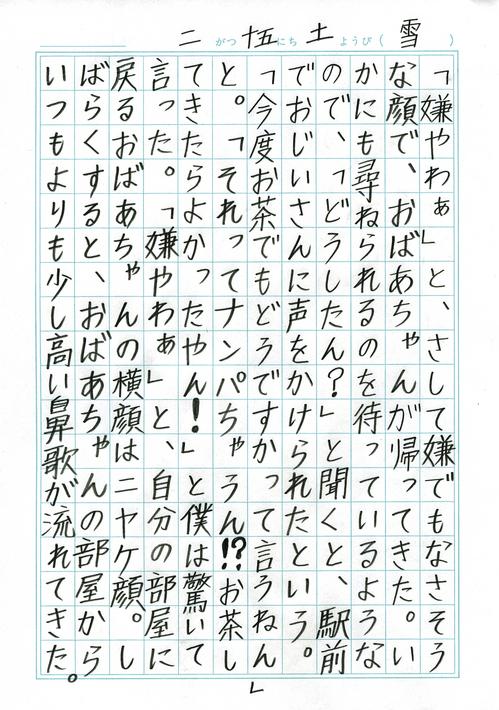 二がつ十五にち土ようび(雪)
「嫌やわぁ」と、さして嫌でもなさそう
な顔で、おばあちゃんが帰ってきた。い
かにも尋ねられるのを待っているような
ので、「どうしたん?」と聞くと、駅前
でおじいさんに声をかけられたという。
「今度お茶でもどうですかって言うねん」
と。「それってナンパちゃうん!?お茶し
てきたらよかったやん!」と僕は驚いて
言った。「嫌やわぁ」と、自分の部屋に
戻るおばあちゃんの横顔はニヤケ顔。し
ばらくすると、おばあちゃんの部屋から
いつもよりも少し高い鼻歌が流れてきた。